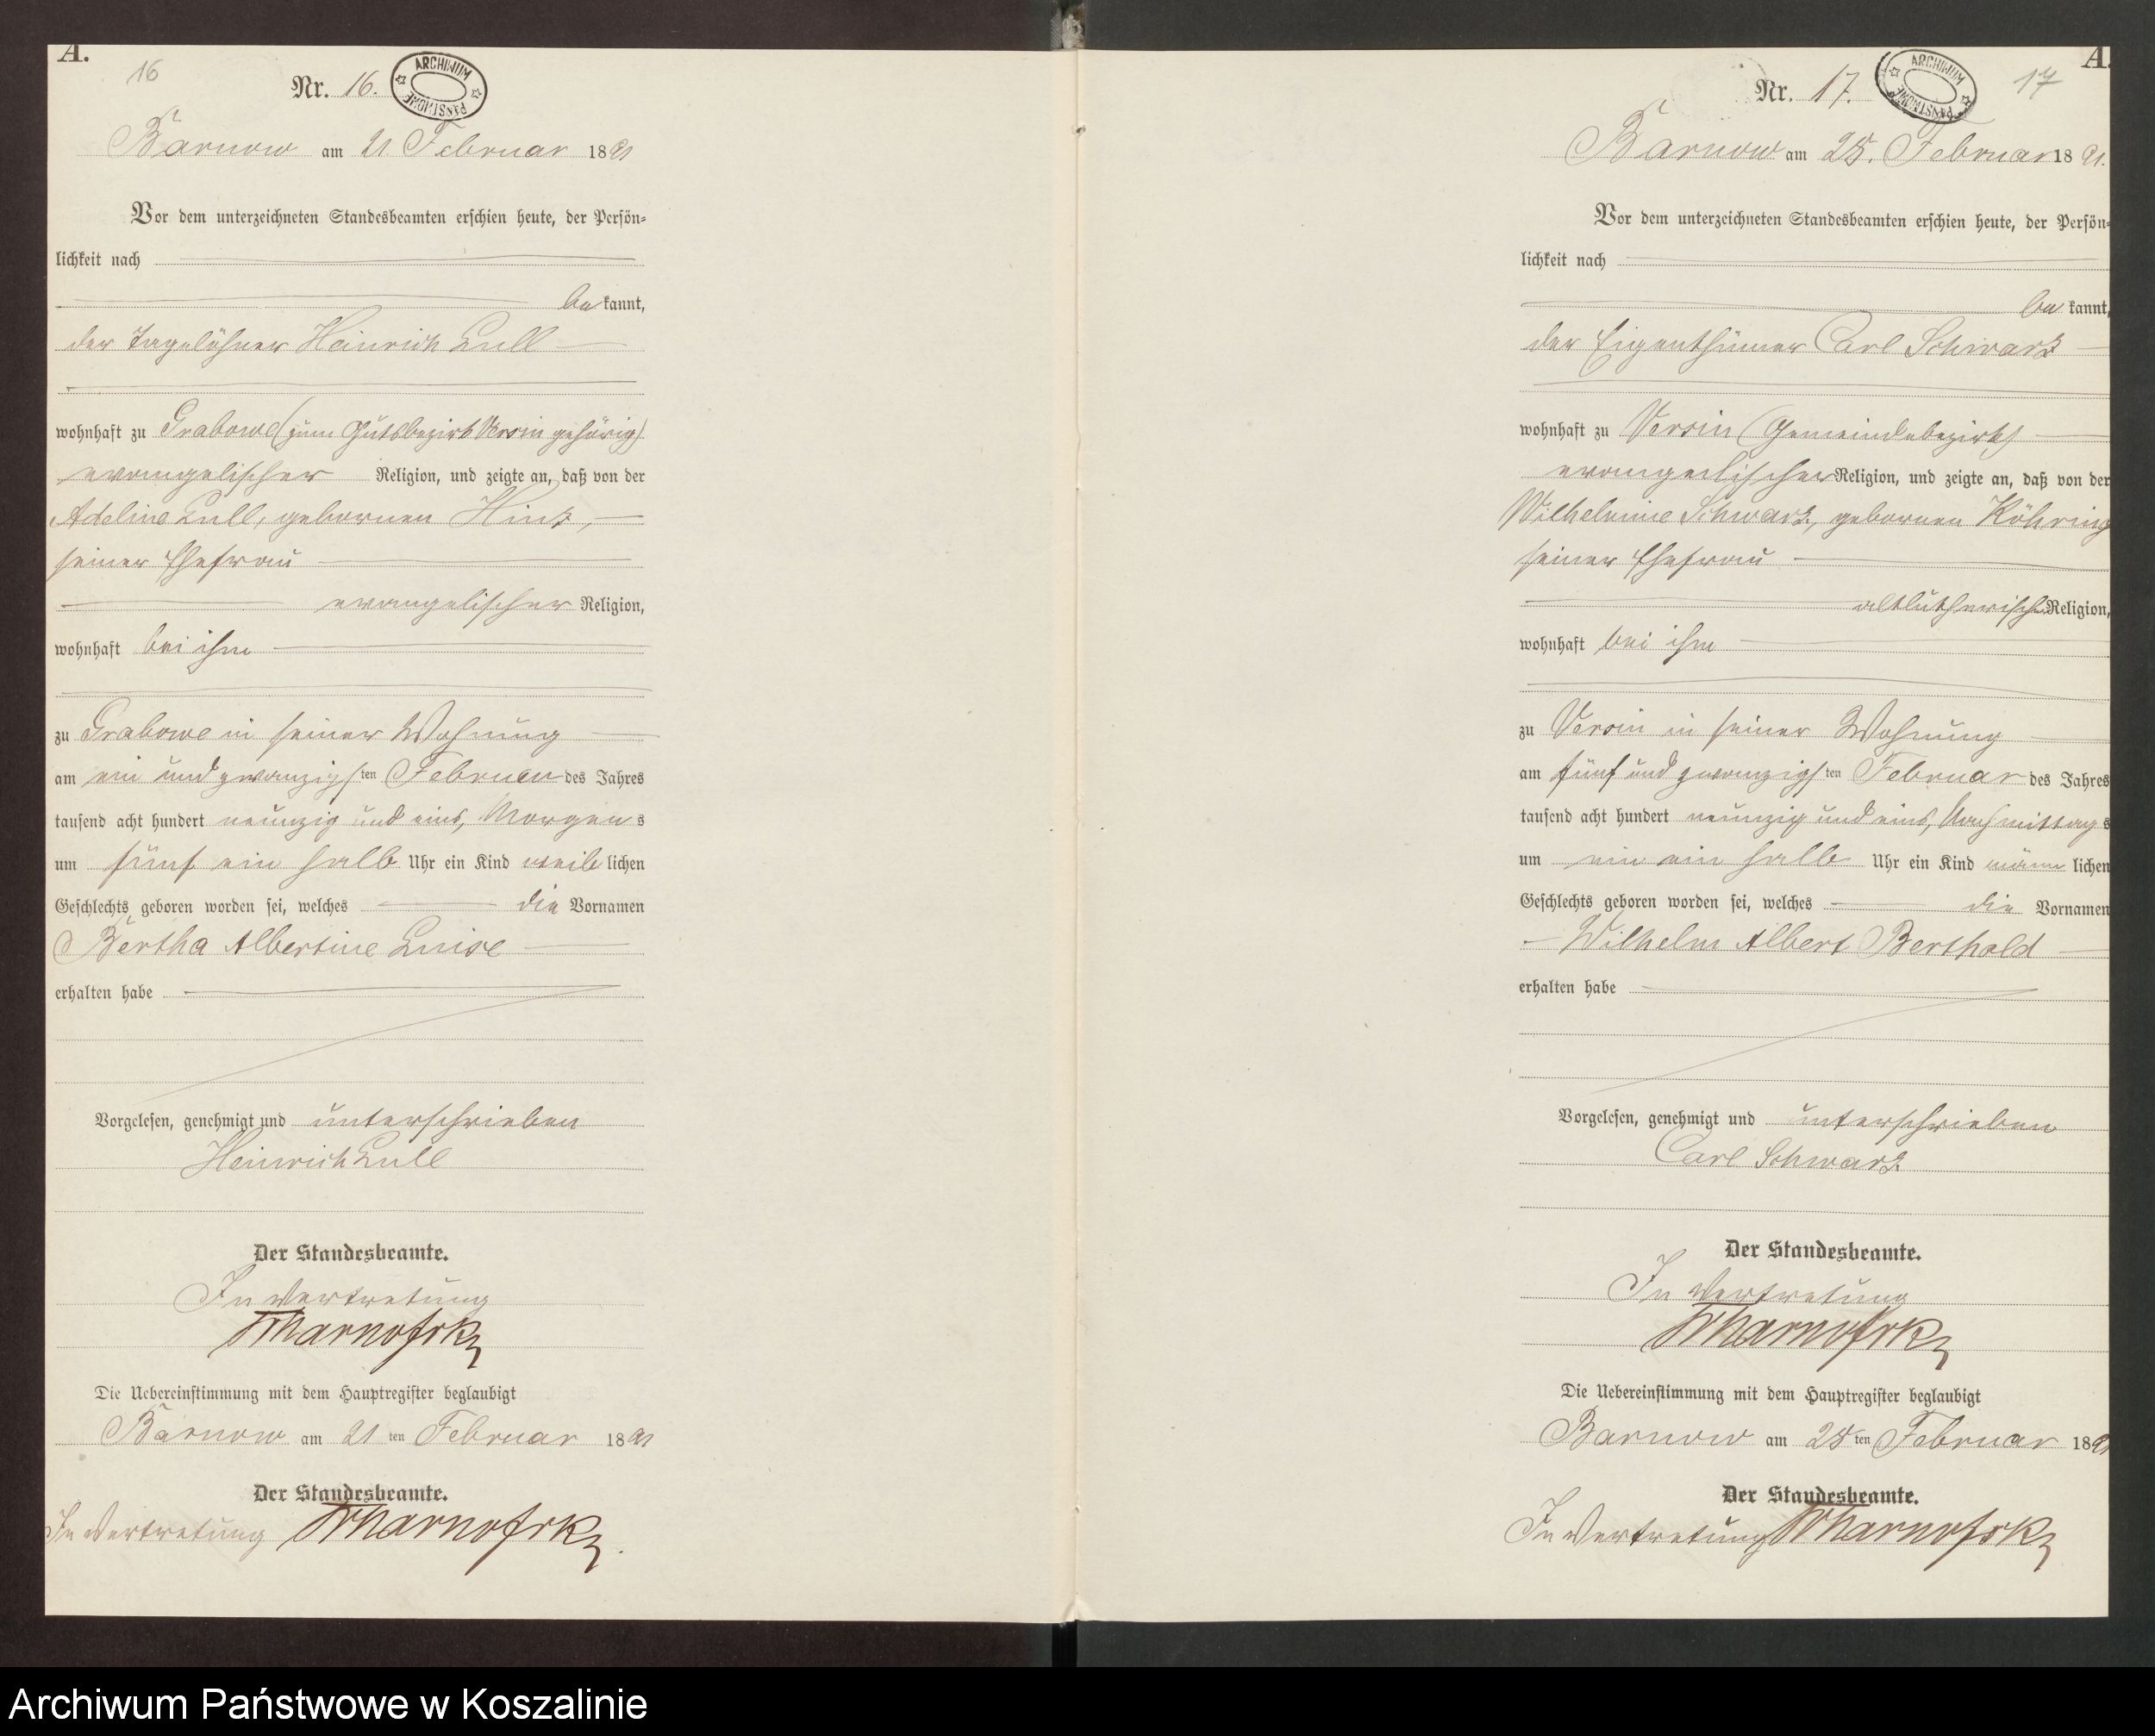 A.
16
Nr. 16.
ARCHIWUM PAŃSTWOWE
Barnow am 21. Februar 1891
Vor dem unterzeichneten Standesbeamten erschien heute, der Persön-
lichkeit nach
bekannt,
der Tagelöhner Heinrich Lull
wohnhaft zu Grabowe (zum Gutsbezirk Versin gehörig)
evangelischer Religion, und zeigte an, daß von der
Adeline Lull, gebornen Hinz,
seiner Ehefrau
evangelischer Religion,
wohnhaft bei ihm
zu Grabowe in seiner Wohnung
am ein und zwanzigsten Februar des Jahres
tausend acht hundert neunzig und eins, Morgens
um fünf ein halb Uhr ein Kind weiblichen
Geschlechts geboren worden sei, welches die Vornamen
Bertha Albertine Luise
erhalten habe
Vorgelesen, genehmigt und unterschrieben
Heinrich Lull
Der Standesbeamte.
In Vertretung
Die Uebereinstimmung mit dem Hauptregister beglaubigt
Barnow am 21ten Februar 1891
Der Standesbeamte.
In Vertretung
A.
17
Nr. 17.
ARCHIWUM PAŃSTWOWE
Barnow am 25. Februar 1891.
Vor dem unterzeichneten Standesbeamten erschien heute, der Persön-
lichkeit nach
bekannt,
der Eigenthümer Carl Schwarz
wohnhaft zu Versin (Gemeindebezirk)
evangelischer Religion, und zeigte an, daß von der
Wilhelmine Schwarz, gebornen Röhring
seiner Ehefrau
altlutherischer Religion,
wohnhaft bei ihm
zu Versin in seiner Wohnung
am fünf und zwanzigsten Februar des Jahres
tausend acht hundert neunzig und eins, Nachmittags
um ein ein halb Uhr ein Kind männlichen
Geschlechts geboren worden sei, welches die Vornamen
Wilhelm Albert Berthold
erhalten habe
Vorgelesen, genehmigt und unterschrieben
Carl Schwarz
Der Standesbeamte.
In Vertretung
Die Uebereinstimmung mit dem Hauptregister beglaubigt
Barnow am 25ten Februar 1891
Der Standesbeamte.
In Vertretung
Archiwum Państwowe w Koszalinie